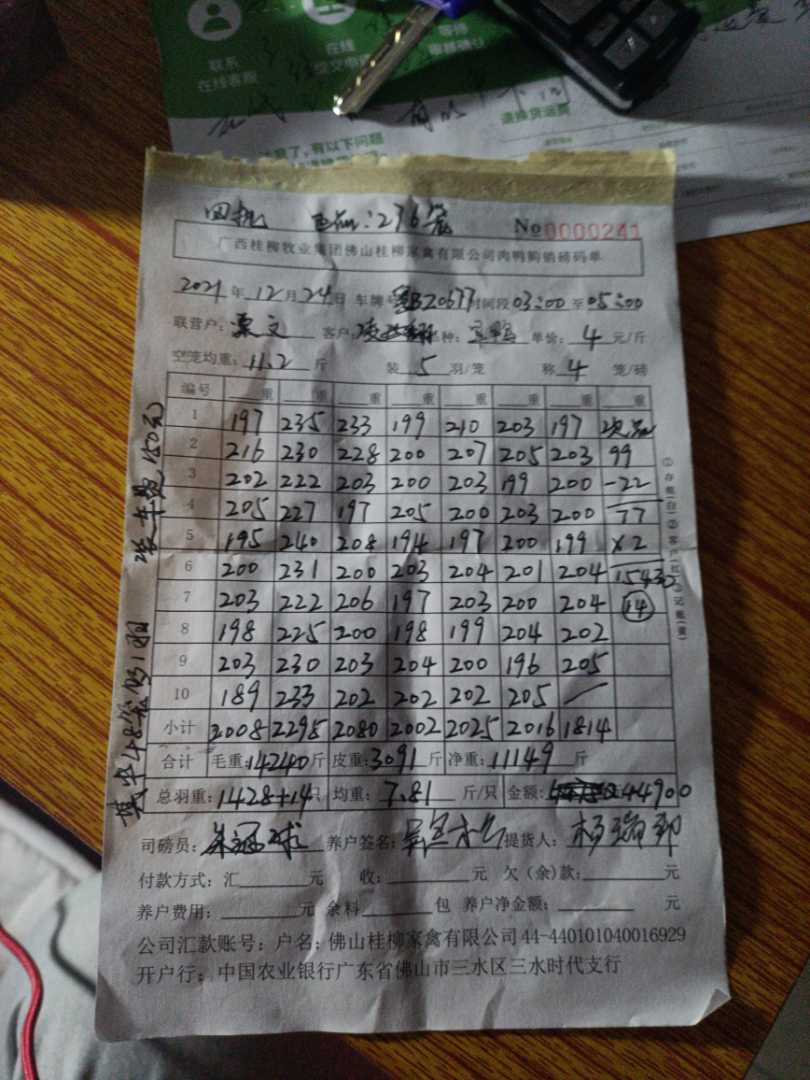 联系
在线客服
在线
提交申请
等待
审核确认
有以下问题
退换货运费
No 0000241
276笼
广西桂柳牧业集团佛山桂柳家禽有限公司肉鸭购销磅码单
2021年12月24日 车牌号 粤B20677 时间段 03:00 至 05:00
联营户: 栗文 客户: 品种: 单价: 4 元/斤
空笼均重: 11.2 斤 装 5 羽/笼 称 4 笼/磅
编号 重 重 重 重 重 重 重 重
1 197 235 233 199 210 203 197 次品
2 216 230 228 200 207 205 203 99
3 202 222 203 200 203 199 200 -22
4 205 227 197 205 200 203 200 77
5 195 240 208 194 197 200 199 x2
6 200 231 200 203 204 201 204 154
7 203 222 206 197 203 200 204 14
8 198 225 200 198 199 204 202
9 203 230 203 204 200 196 205
10 189 233 202 202 202 205 —
小计 2008 2295 2080 2002 2025 2016 1814
合计 毛重: 14240 斤 皮重: 3091 斤 净重: 11149 斤
总羽重: 1428+14 只 均重: 7.81 斤/只 金额: 44900
司磅员: 养户签名: 提货人:
付款方式: 汇 元 收: 元 欠(余)款: 元
养户费用: 元 余料 包 养户净金额: 元
公司汇款账号: 户名: 佛山桂柳家禽有限公司 44-440101040016929
开户行: 中国农业银行广东省佛山市三水区三水时代支行
①存根(白)②客户(红)③记账(黄)
150元
48笼
1羽